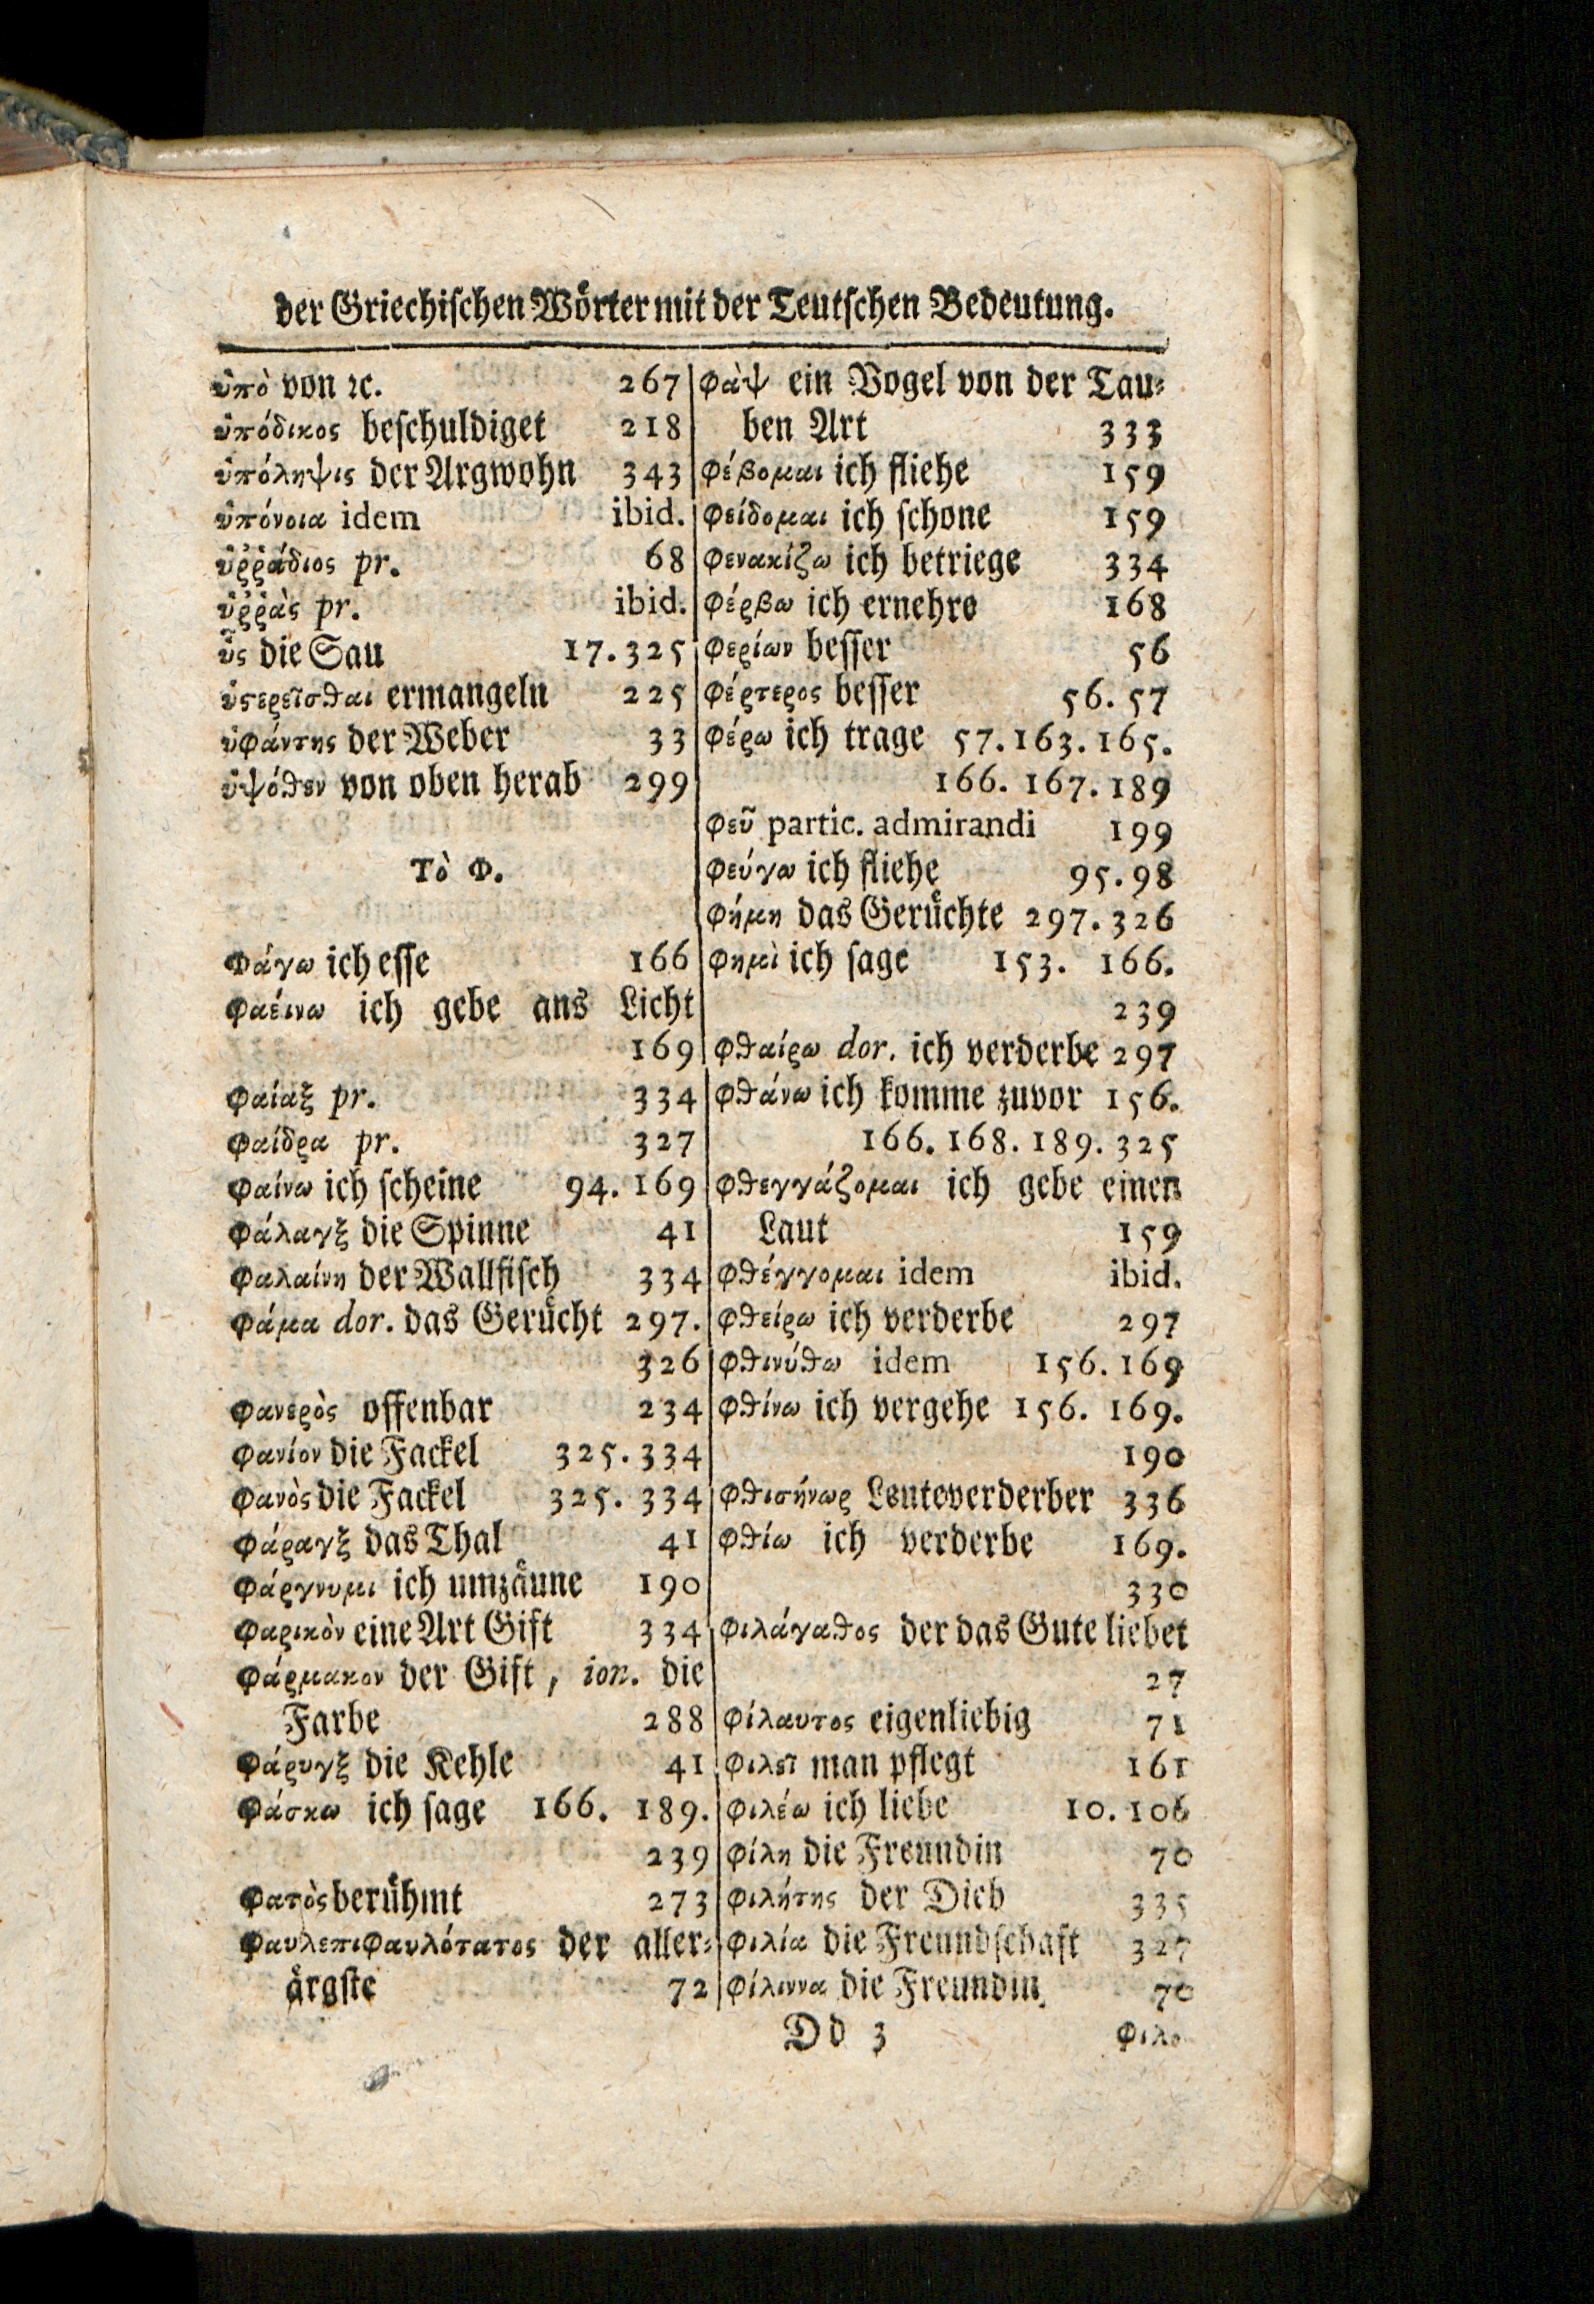 der Griechiſchen Wörter mit der Teutſchen Bedeutung.
ὑπὸ von ꝛc. 267
ὑπόδικος beſchuldiget 218
ὑπόληψις der Argwohn 343
ὑπόνοια idem ibid.
ὑῤῥάδιος pr. 68
ὑῤῥὰς pr. ibid.
ὗς die Sau 17. 325
ὑϛερεῖσθαι ermangeln 225
ὑφάντης der Weber 33
ὑψόθεν von oben herab 299
Τὸ Φ.
Φάγω ich eſſe 166
φαείνω ich gebe ans Licht
169
φαίαξ pr. 334
φαίδρα pr. 327
φαίνω ich ſcheine 94. 169
φάλαγξ die Spinne 41
φαλαίνη der Wallfiſch 334
φάμα dor. das Gerücht 297.
326
φανερὸς offenbar 234
φανίον die Fackel 325. 334
φανὸς die Fackel 325. 334
φάραγξ das Thal 41
φάργνυμι ich umzäune 190
φαρικὸν eine Art Gift 334
φάρμακον der Gift, ion. die
Farbe 288
φάρυγξ die Kehle 41
φάσκω ich ſage 166. 189.
239
φατὸς berühmt 273
φαυλεπιφαυλότατος der aller⸗
ärgſte 72
φὰψ ein Vogel von der Tau⸗
ben Art 333
φέβομαι ich fliehe 159
φείδομαι ich ſchone 159
φενακίζω ich betriege 334
φέρβω ich ernehre 168
φερίων beſſer 56
φέρτερος beſſer 56. 57
φέρω ich trage 57. 163. 165.
166. 167. 189
φεῦ partic. admirandi 199
φεύγω ich fliehe 95. 98
φήμη das Gerüchte 297. 326
φημὶ ich ſage 153. 166.
239
φθαίρω dor. ich verderbe 297
φθάνω ich komme zuvor 156.
166. 168. 189. 325
φθεγγάζομαι ich gebe einen
Laut 159
φθέγγομαι idem ibid.
φθείρω ich verderbe 297
φθινύθω idem 156. 169
φθίνω ich vergehe 156. 169.
190
φθισήνωρ Leuteverderber 336
φθίω ich verderbe 169.
330
φιλάγαθος der das Gute liebet
27
φίλαυτος eigenliebig 71
φιλεῖ man pflegt 161
φιλέω ich liebe 10. 106
φίλη die Freundin 70
φιλήτης der Dieb 335
φιλία die Freundſchaft 327
φίλιννα die Freundin 70
Dd 3 φιλο